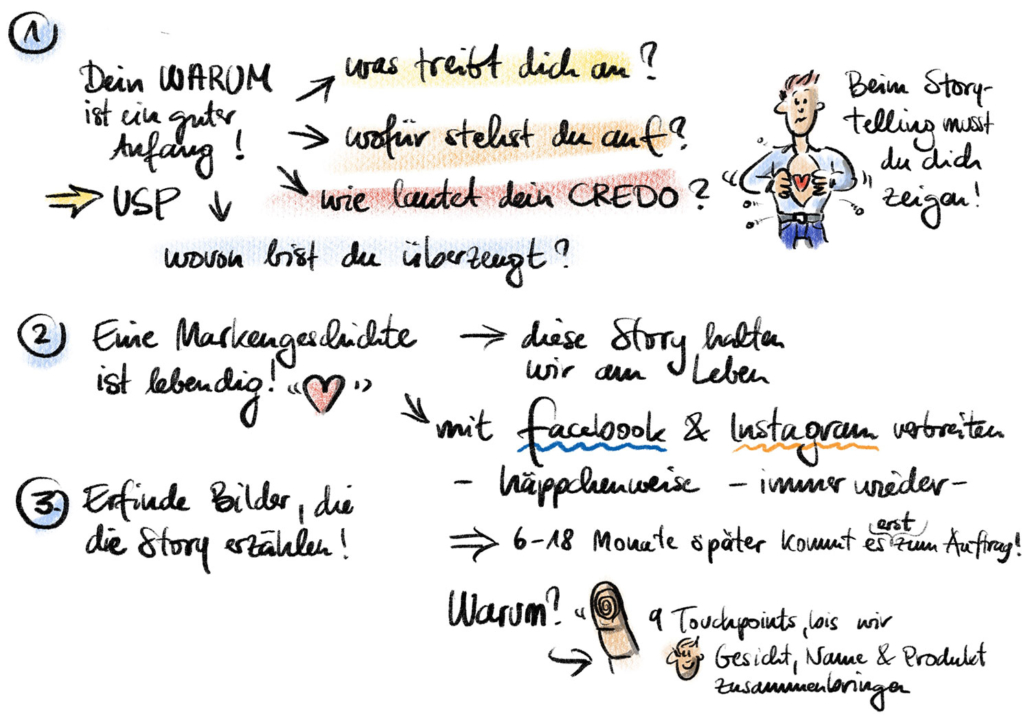 1
Dein WARUM
ist ein guter
Anfang!
USP
was treibt dich an?
wofür stehst du auf?
wie lautet dein CREDO?
wovon bist du überzeugt?
Beim Story-
telling musst
du dich
zeigen!
2
Eine Markengeschichte
ist lebendig!
diese Story halten
wir am Leben
mit facebook & Instagram verbreiten
- häppchenweise - immer wieder -
3.
Erfinde Bilder, die
die Story erzählen!
6-18 Monate später kommt es erst zum Auftrag!
Warum?
9 Touchpoints, bis wir
Gesicht, Name & Produkt
zusammenbringen